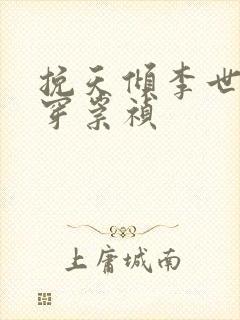 挽天傾李世
穿祟禎
上庸城南